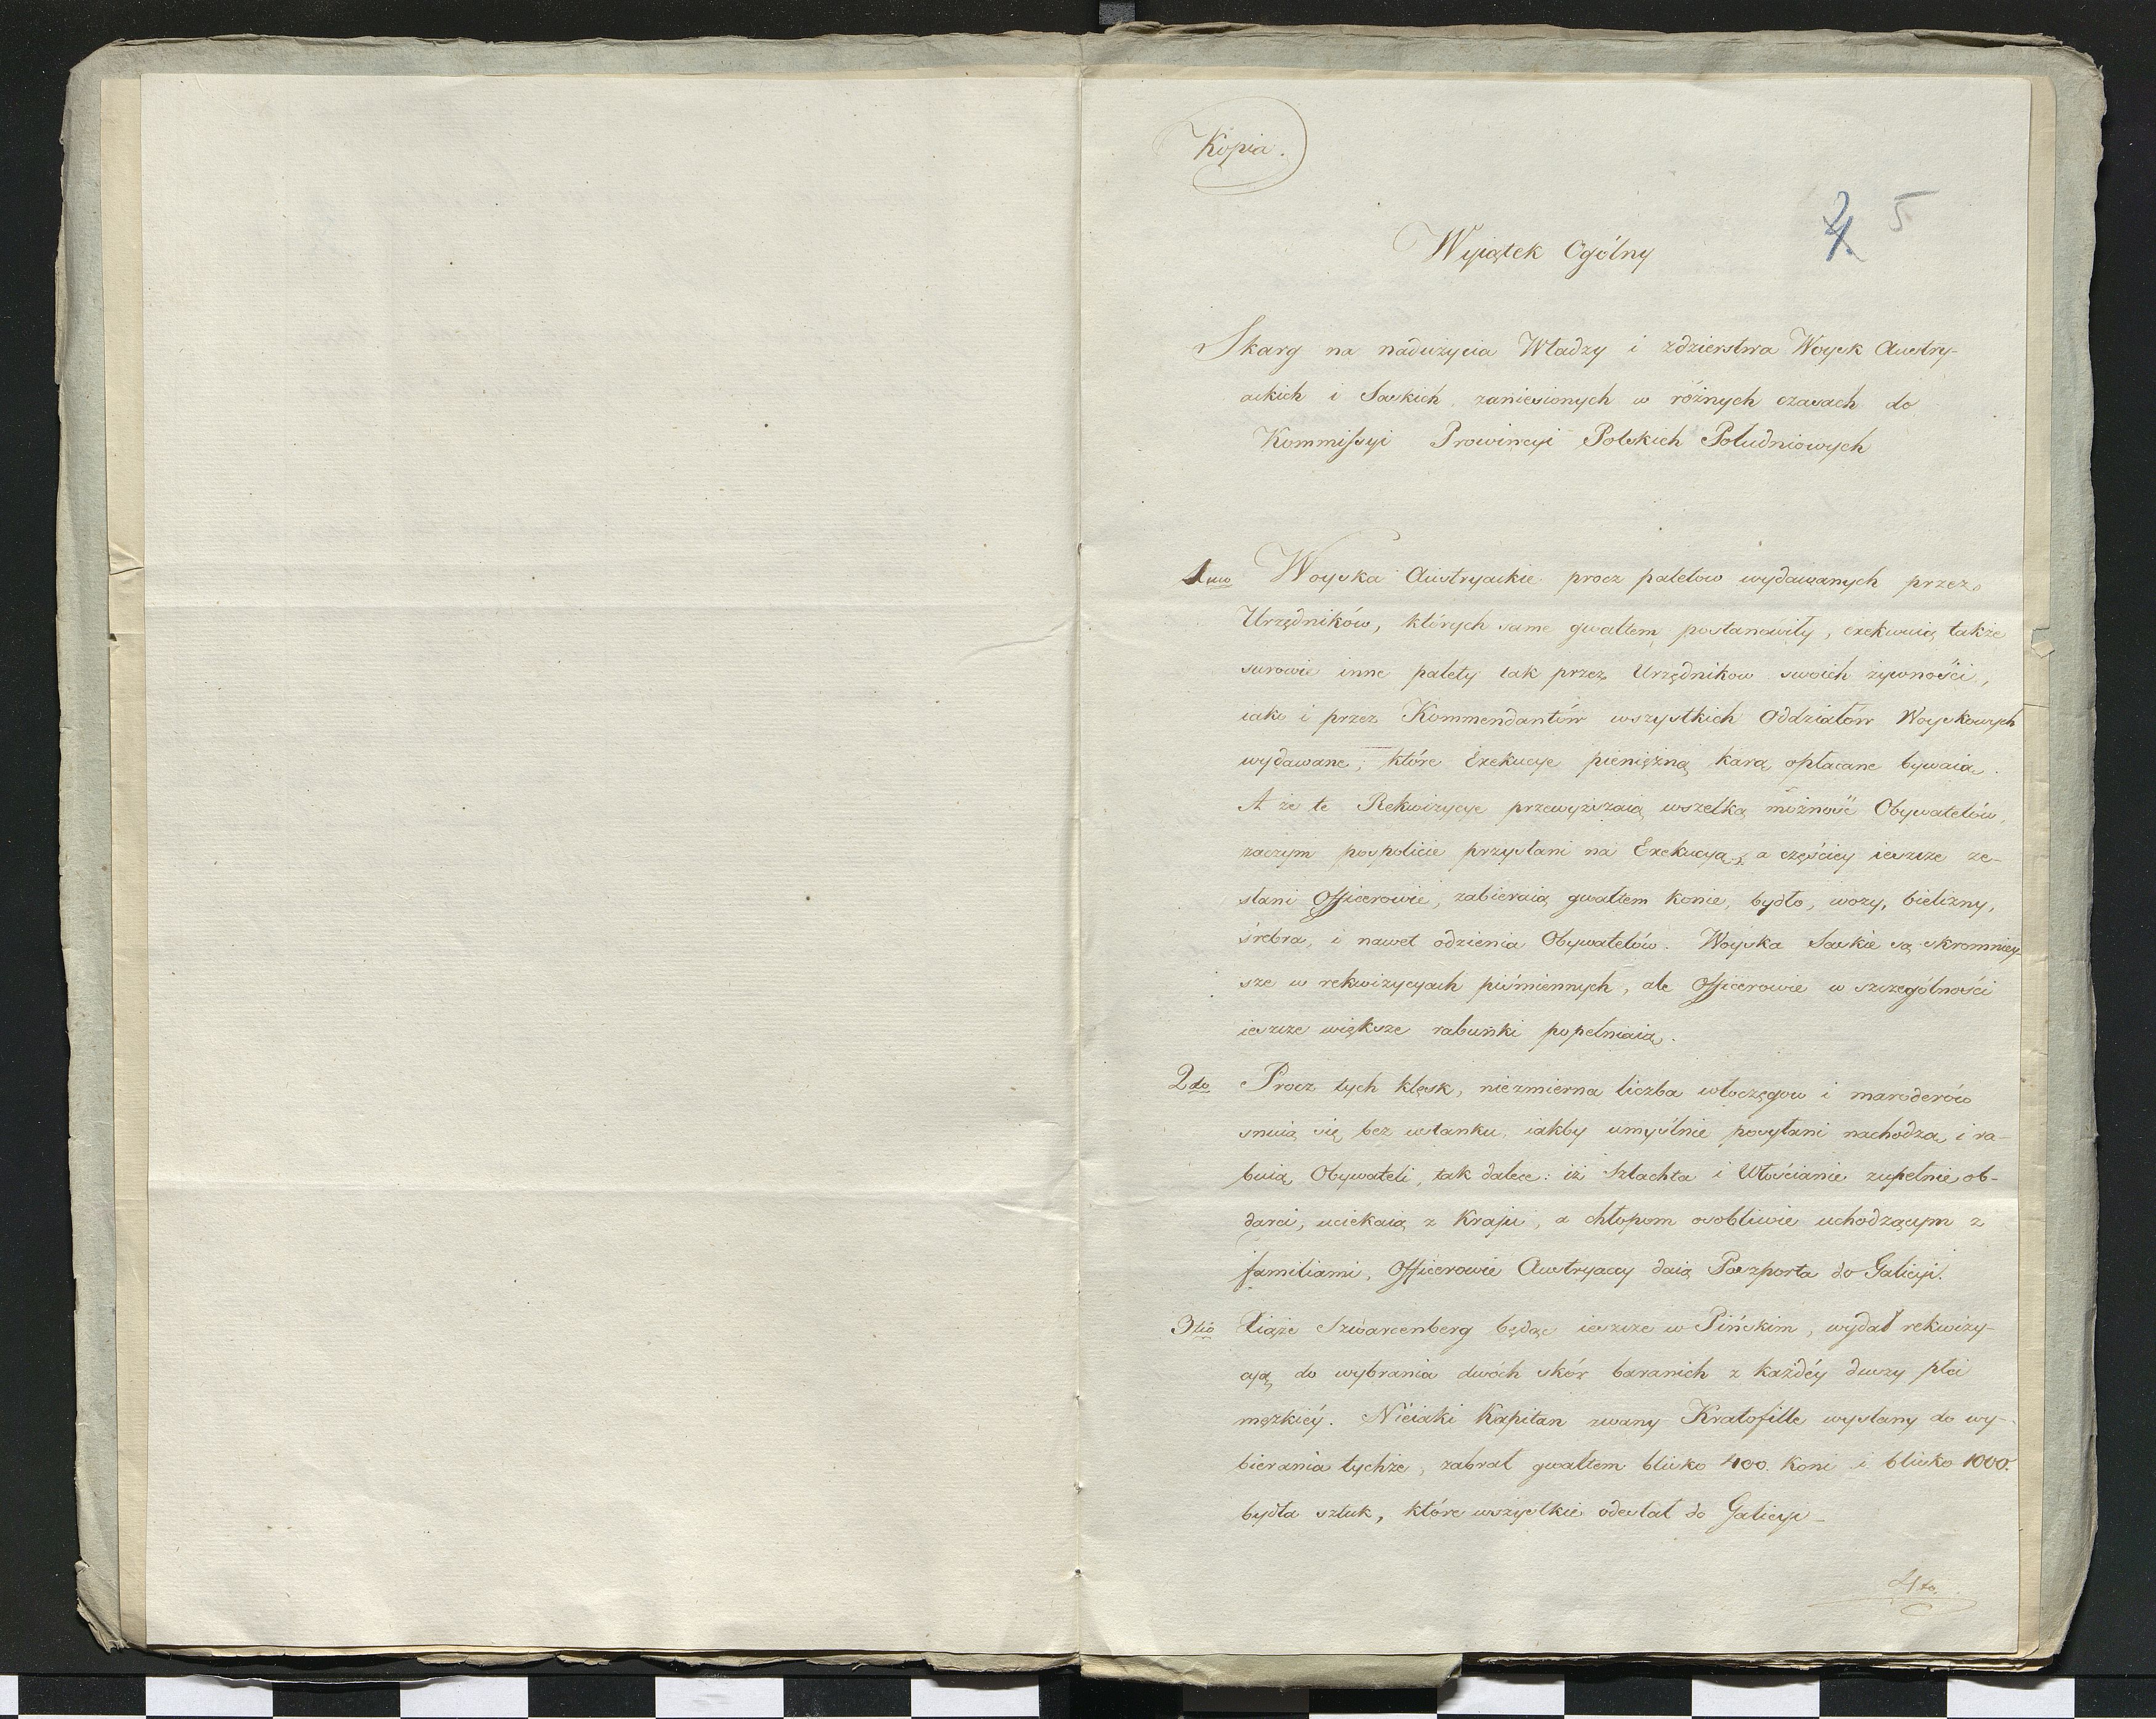 Kopia.
5
Wyiątek Ogólny
Skarg na nadużycia Władzy i zdzierstwa Woysk Austry-
ackich i Saskich zaniesionych w różnych czasach do
Kommissyi Prowincyi Polskich Południowych
1mo Woyska Austryackie procz paletow wydawanych przez
Urzędników, których same gwałtem postanowiły, exekwuią także
surowie inne palety tak przez Urzędnikow swoich żywności,
iako i przez Kommendantów wszystkich Oddziałów Woyskowych
wydawane; które Exekucye pieniężną karą opłacane bywaią.
A że te Rekwizycye przewyższaią wszelką możność Obywatelów,
zaczym pospolicie przysłani na Exekucyą, a częściey ieszcze ze-
słani Officerowie, zabieraią gwałtem konie, bydło, wozy, bielizny,
śrebra, i nawet odzienia Obywatelów. Woyska Saskie są skromniey-
sze w rekwizycyach piśmiennych, ale Officerowie w szczególności
ieszcze większe rabunki popełniaią.
2do Procz tych klęsk, niezmierna liczba włoczęgow i maroderów
snuią się bez ustanku, iakby umyślnie posyłani nachodzą, i ra-
buią Obywateli, tak dalece: iż Szlachta i Włościanie zupełnie ob-
darci, uciekaią z Kraju, a chłopom osobliwie uchodzącym z
familiami, Officerowie Austryaccy daią Paszporta do Galicyi.
3tio Xiąże Szwarcenberg będąc ieszcze w Pińskim, wydał rekwizy-
cyą do wybrania dwóch skór baranich z każdéy duszy płci
męzkiéy. Nieiaki Kapitan zwany Kratofille wysłany do wy-
bierania tychże, zabrał gwałtem blisko 400. koni i blisko 1000.
bydła sztuk, które wszystkie odesłał do Galicyi -
4to.